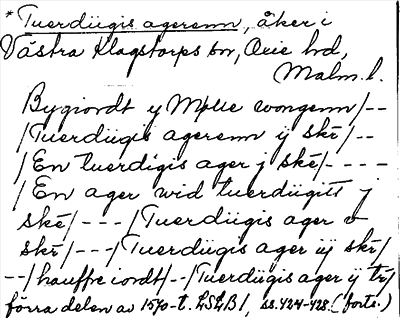 *Tuerdiigis agerenn, åker i
Västra Klagstorps sn, Oxie hd,
Malm. l.
Bygiordt y Mølle wongenn/--
/Tuerdiigis agerenn ij skē/--
/En tuerdigis ager j skē/----
/En ager wid tuerdiigitt j
skē/---/Tuerdiigis ager v
skē/---/Tuerdiigis ager iij skē/
--/hauffre iordt/--/Tuerdiigis ager ij
förra delen av 1570-t. LSLB1, ss. 424-428. (forts.)